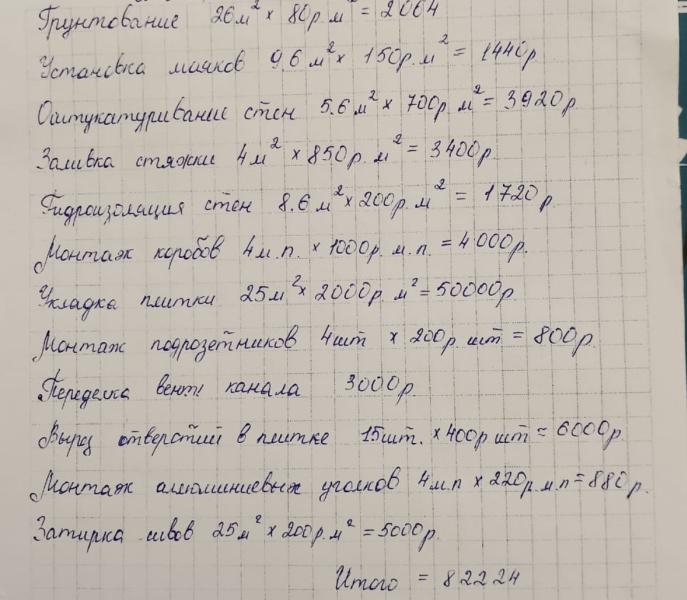 Грунтование 26м² х 80р м² = 2064
Установка маяков 9.6 м² х 150р. м² = 1440р
Оштукатуривание стен 5.6 м² х 700р м² = 3920р.
Заливка стяжки 4м² х 850р. м² = 3400р.
Гидроизоляция стен 8.6 м² х 200р. м² = 1720р
Монтаж коробов 4м.п. х 1000р. м.п. = 4000р.
Укладка плитки 25м² х 2000р м² = 50000р.
Монтаж подрозетников 4шт х 200р. шт = 800р.
Переделка вент канала 3000р.
Вырез отверстий в плитке 15шт. х 400р шт = 6000р.
Монтаж алюминиевых уголков 4м.п х 220р.м.п = 880р.
Затирка швов 25м² х 200р. м² = 5000р.
Итого = 82224